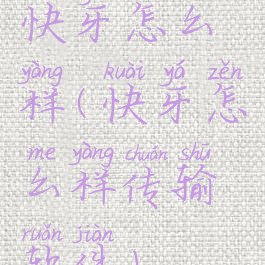 快牙怎么
yàng kuài yá zěn
样(快牙怎
me yàng chuán shū
么样传输
ruǎn jiàn
软件)